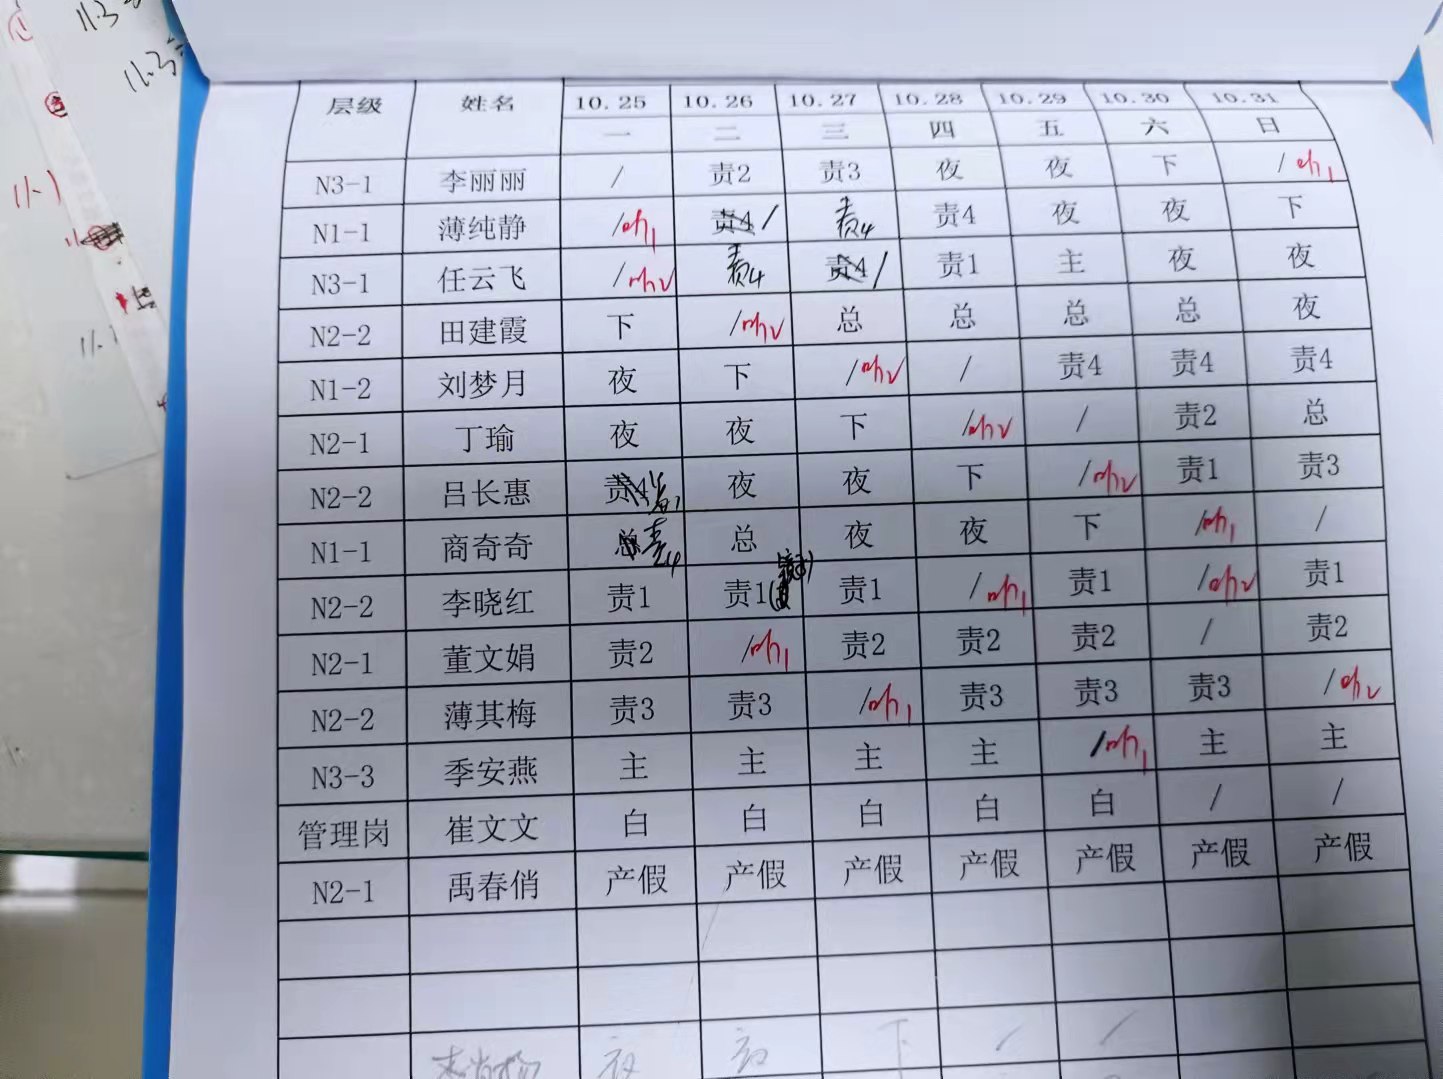 层级 姓名 10.25 10.26 10.27 10.28 10.29 10.30 10.31
一 二 三 四 五 六 日
N3-1 李丽丽 / 责2 责3 夜 夜 下 /
N1-1 薄纯静 / 责4 / 责4 责4 夜 夜 下
N3-1 任云飞 / 责4 责4 / 责1 主 夜 夜
N2-2 田建霞 下 / 总 总 总 总 夜
N1-2 刘梦月 夜 下 / / 责4 责4 责4
N2-1 丁瑜 夜 夜 下 / / 责2 总
N2-2 吕长惠 责4 夜 夜 下 / 责1 责3
N1-1 商奇奇 总 责4 总 夜 夜 下 / /
N2-2 李晓红 责1 责1 责1 / 责1 / 责1
N2-1 董文娟 责2 / 责2 责2 责2 / 责2
N2-2 薄其梅 责3 责3 / 责3 责3 责3 /
N3-3 季安燕 主 主 主 主 / 主 主
管理岗 崔文文 白 白 白 白 白 / /
N2-1 禹春俏 产假 产假 产假 产假 产假 产假 产假
夜 夜 下 / /